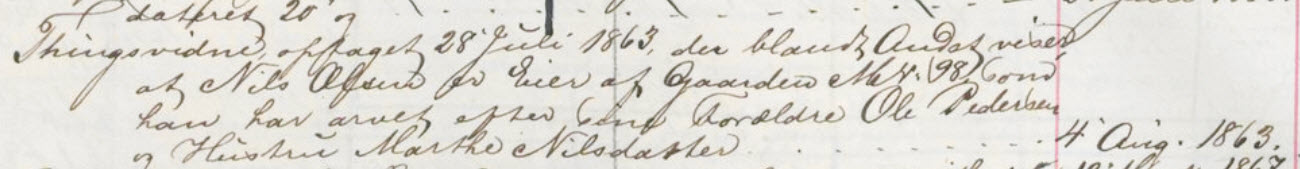 dateret 20 og
Thingsvidne, optaget 28 Juli 1863, der blandt Andet viser
at Nils Olsen er Eier af Gaarden M. N. 98, som
han har arvet efter sine Forældre Ole Pedersen
og Hustru Marthe Nilsdatter 4 Aug. 1863.